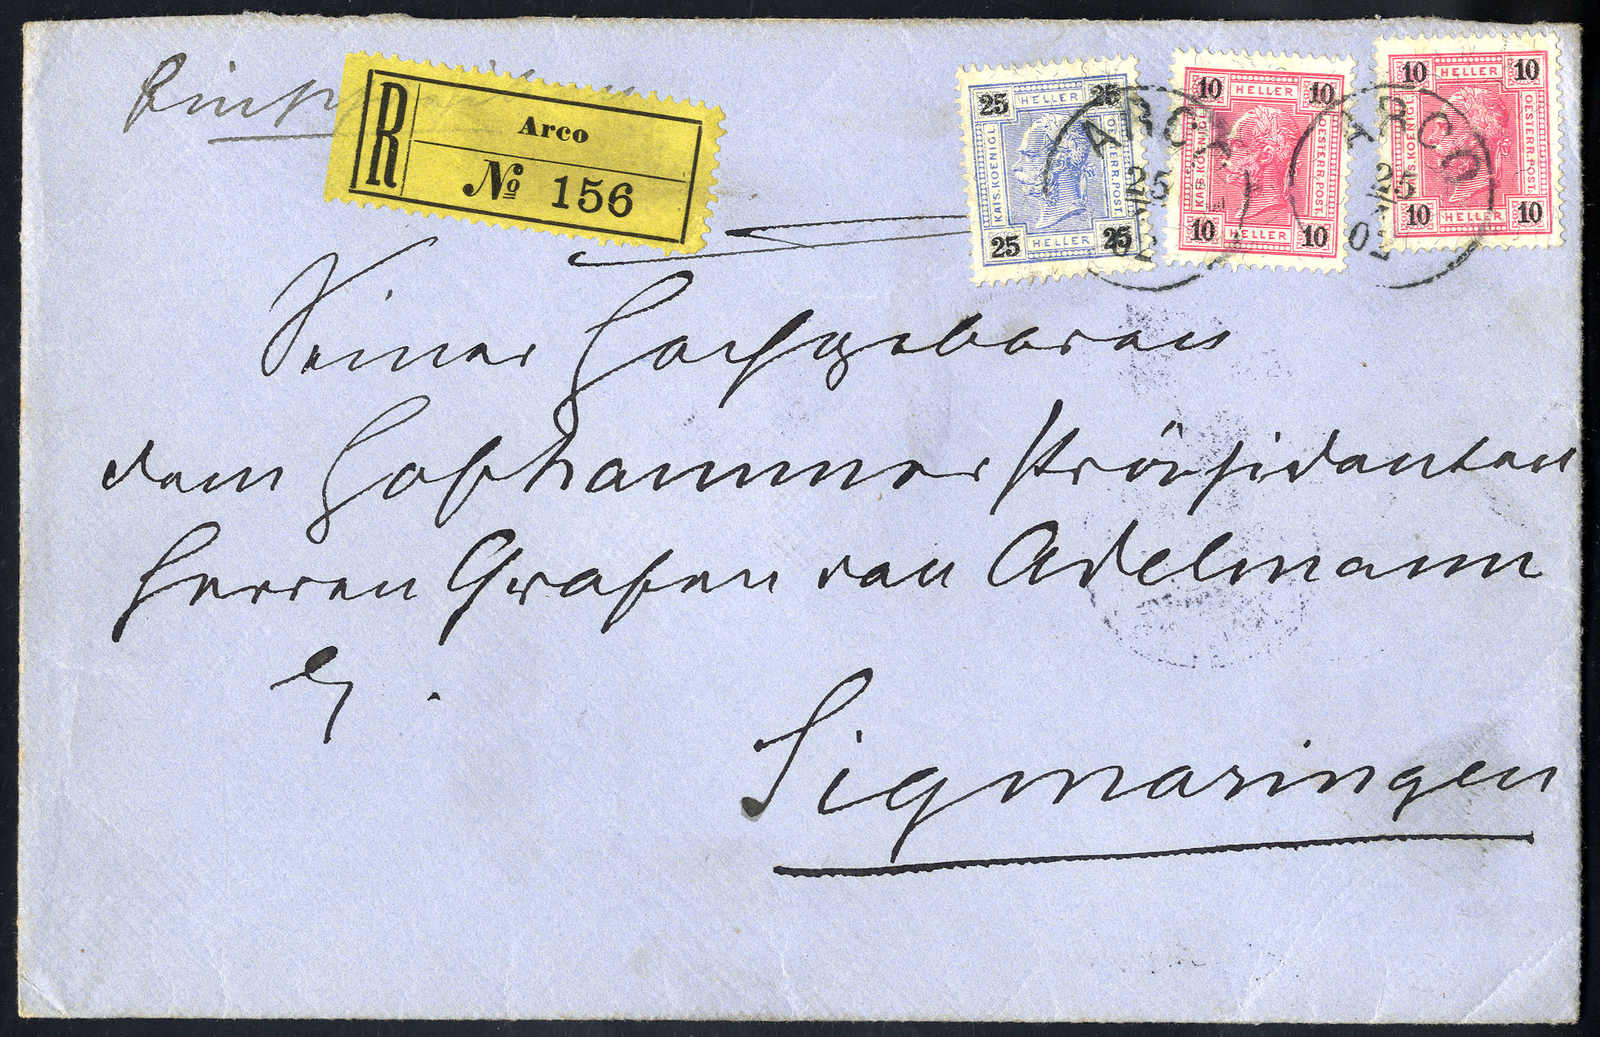 Einschreiben
R
Arco
No 156
25 HELLER 25
KAIS. KOENIGL. OESTERR. POST.
25 HELLER 25
10 HELLER 10
KAIS. KOENIGL. OESTERR. POST.
10 HELLER 10
10 HELLER 10
KAIS. KOENIGL. OESTERR. POST.
10 HELLER 10
ARCO
25
02
ARCO
25
02
Seiner Hochgeboren
dem Hofkammer Präsidenten
Herrn Grafen von Adelmann
Sigmaringen